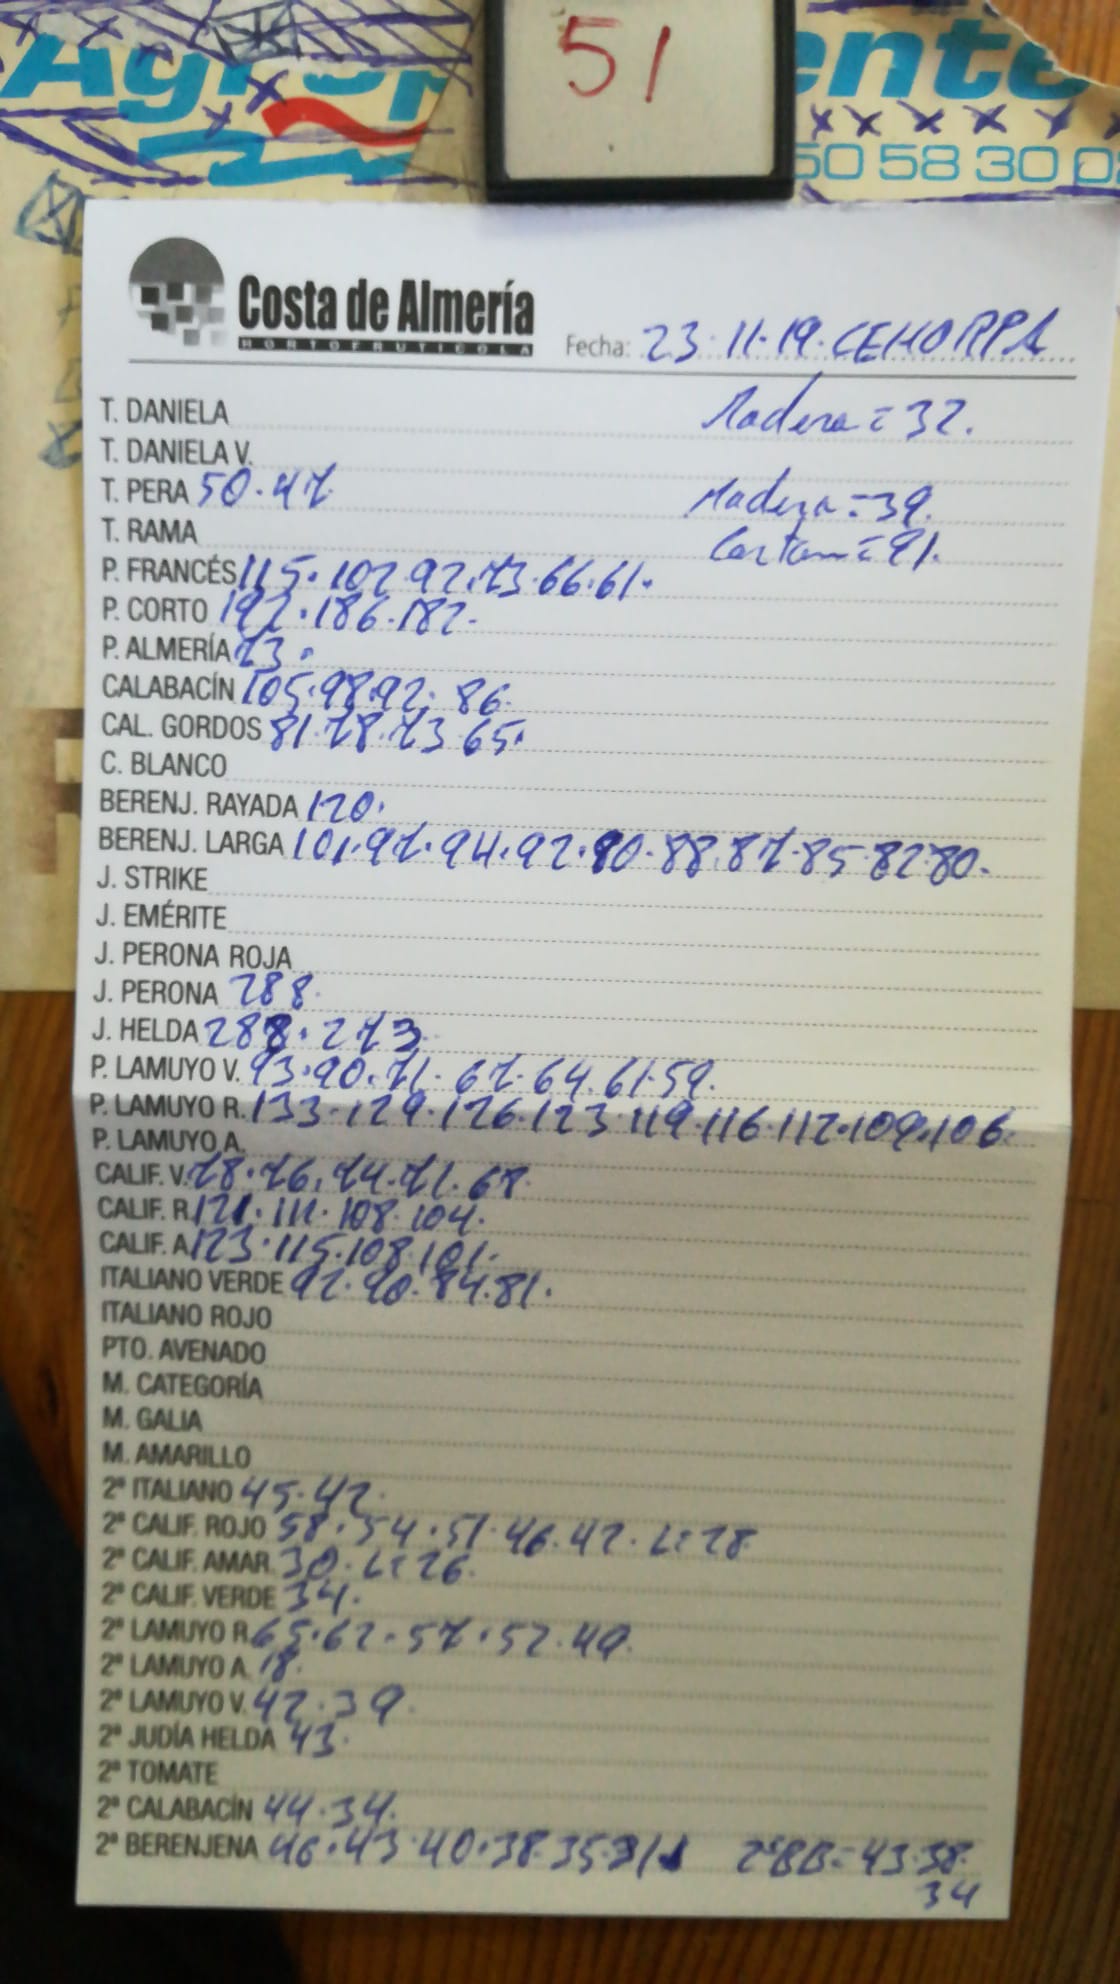 51
50 58 30 0
Costa de Almería
HORTOFRUTICOLA
Fecha: 23.11.19. CEHORPA
T. DANIELA Madera = 32.
T. DANIELA V.
T. PERA 50.47 Madera = 39.
T. RAMA
P. FRANCÉS 115.102.92.73.66.61.
P. CORTO 192.186.182.
P. ALMERÍA 73.
CALABACÍN 105.98.92.86.
CAL. GORDOS 81.78.73 65.
C. BLANCO
BERENJ. RAYADA 120.
BERENJ. LARGA 101.97.94.92.90.88.87.85.82.80.
J. STRIKE
J. EMÉRITE
J. PERONA ROJA
J. PERONA 288.
J. HELDA 288.273.
P. LAMUYO V. 93.90.71.67.64.61.59.
P. LAMUYO R. 133.129.126.123.119.116.112.109.106.
P. LAMUYO A.
CALIF. V. 78.76.74.71.68.
CALIF. R. 121.111.108.104.
CALIF. A 123.115.108.101.
ITALIANO VERDE 92.90.84.81.
ITALIANO ROJO
PTO. AVENADO
M. CATEGORÍA
M. GALIA
M. AMARILLO
2ª ITALIANO 45.42.
2ª CALIF. ROJO 58.54.51.46.42. L=28
2ª CALIF. AMAR. 30. L=26.
2ª CALIF. VERDE 34.
2ª LAMUYO R. 65.62.57.52.49.
2ª LAMUYO A. 18.
2ª LAMUYO V. 42.39.
2ª JUDÍA HELDA 43.
2ª TOMATE
2ª CALABACÍN 44.34.
2ª BERENJENA 46.43.40.38.35.31 2ªBB=43.38.
34